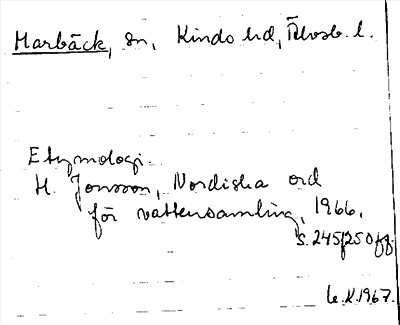 Marbäck, sn, Kindo hd, Älvsb. l.
Etymologi.
H. Jonsson, Nordiska ord
för vattensamling, 1966,
s. 245, 250 ff.
1967.